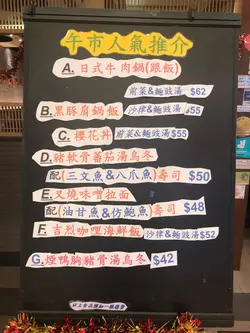 午市人氣推介
A. 日式牛肉鍋(跟飯)
前菜&麵豉湯 $62
B. 黑豚腐鍋飯 沙律&麵豉湯 $55
C. 櫻花丼 前菜&麵豉湯 $55
D. 豬軟骨蕃茄湯烏冬
配(三文魚&八爪魚)壽司 $50
E. 叉燒味噌拉面
配(油甘魚&仿鮑魚)壽司 $48
F. 吉烈咖哩海鮮飯 沙律&麵豉湯 $52
G. 煙鴨胸豬骨湯烏冬 $42
以上食品須加一服務費